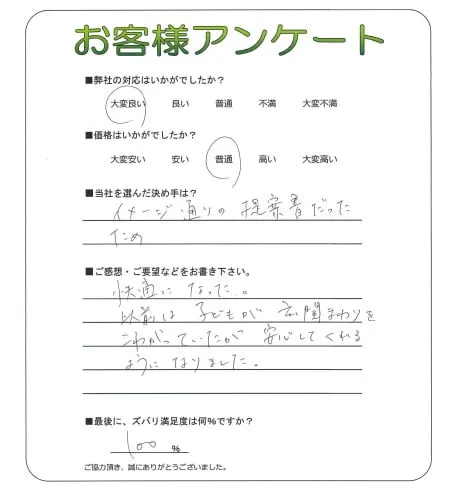 お客様アンケート
■弊社の対応はいかがでしたか?
大変良い 良い 普通 不満 大変不満
■価格はいかがでしたか?
大変安い 安い 普通 高い 大変高い
■当社を選んだ決め手は?
イメージ通りの提案書だった
ため
■ご感想・ご要望などをお書き下さい。
快適になった。
以前は子どもが玄関まわりを
こわがっていたが安心してくれる
ようになりました。
■最後に、ズバリ満足度は何%ですか?
100 %
ご協力頂き、誠にありがとうございました。